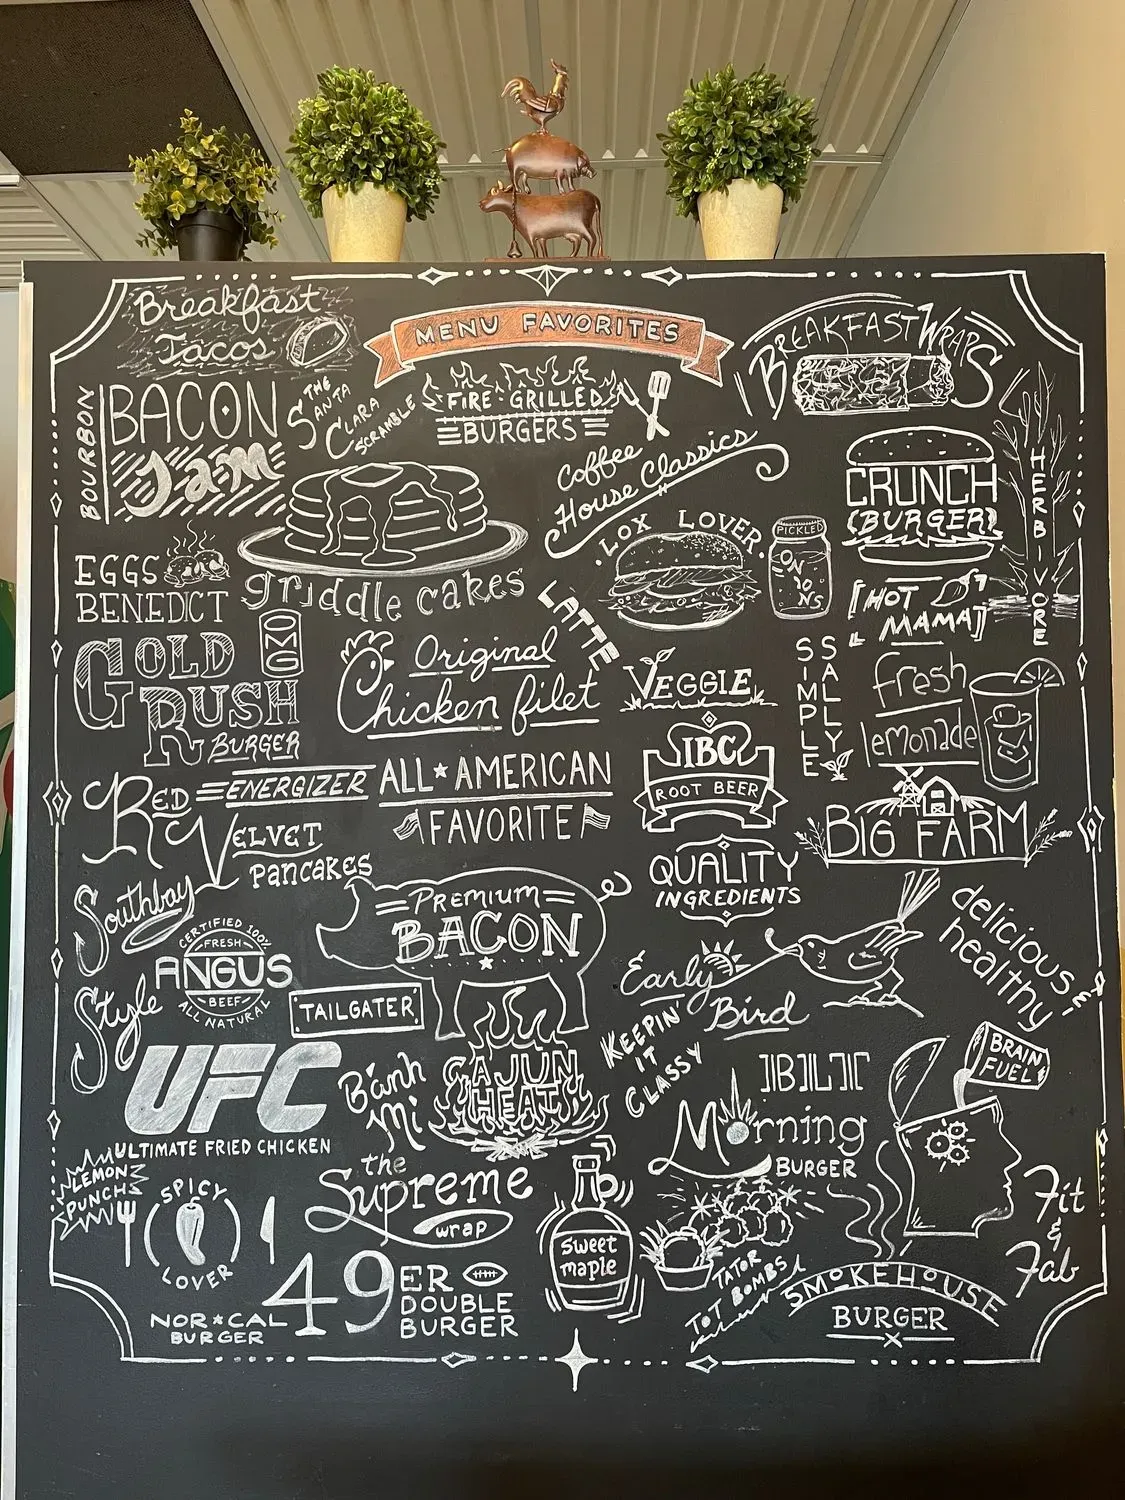 Breakfast
Tacos
MENU FAVORITES
BREAKFAST WRAPS
BOURBON
BACON
Jam
THE
SANTA
CLARA
SCRAMBLE
FIRE-GRILLED
BURGERS
Coffee
House Classics
CRUNCH
BURGER
HERBIVORE
LOX LOVER
PICKLED
ONIONS
EGGS
BENEDICT
griddle cakes
LATTE
HOT
MAMA
GOLD
RUSH
BURGER
OMG
Original
Chicken filet
VEGGIE
SIMPLE
SALLY
fresh
lemonade
RED
VELVET
PANCAKES
ENERGIZER
ALL★AMERICAN
FAVORITE
IBC
ROOT BEER
BIG FARM
QUALITY
INGREDIENTS
Southbay
Style
CERTIFIED 100%
FRESH
ANGUS
BEEF
ALL NATURAL
PREMIUM
BACON
TAILGATER
Early
Bird
delicious
healthy
KEEPIN'
IT
CLASSY
BRAIN
FUEL
UFC
ULTIMATE FRIED CHICKEN
Bánh
Mi
CAJUN
HEAT
BLT
Morning
BURGER
LEMON
PUNCH
SPICY
LOVER
the
Supreme
wrap
Sweet
maple
TATOR
TOT BOMBS
Fit
&
Fab
NOR★CAL
BURGER
49ER
DOUBLE
BURGER
SMOKEHOUSE
BURGER